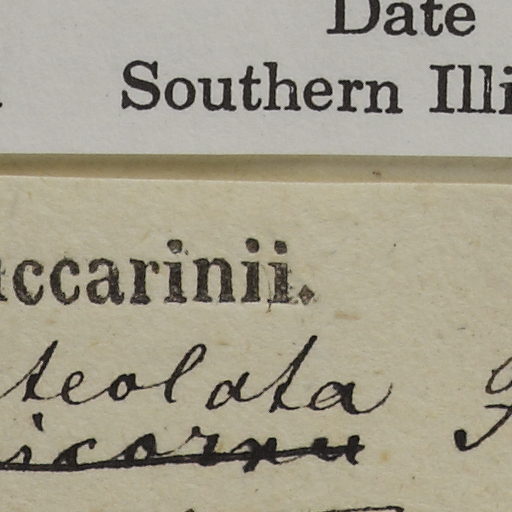 Date
Southern Illi
ccarinii.
teolata
icornu